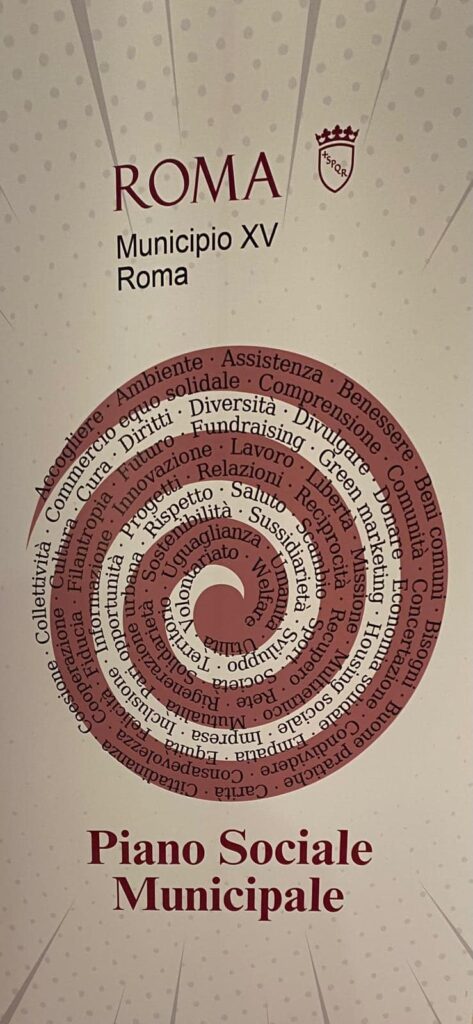 ROMA
XSPQR
Municipio XV
Roma
Accogliere · Ambiente · Assistenza · Benessere · Beni comuni · Bisogni · Buone pratiche · Carità · Cittadinanza · Coesione · Collettività · Commercio equo solidale · Comprensione · Comunità · Concertazione · Condividere · Consapevolezza · Cooperazione · Cultura · Cura · Diritti · Diversità · Divulgare · Donare · Economia solidale · Empatia · Equità · Felicità · Fiducia · Filantropia · Futuro · Fundraising · Green marketing · Housing sociale · Impresa · Inclusione · Informazione · Innovazione · Lavoro · Libertà · Missione · Multietnico · Mutualità · Pari opportunità · Progetti · Relazioni · Reciprocità · Recupero · Rete · Rigenerazione urbana · Rispetto · Saluto · Scambio · Società · Solidarietà · Sostenibilità · Sussidiarietà · Sviluppo · Territorio · Uguaglianza · Utilità · Volontariato · Welfare
Piano Sociale
Municipale